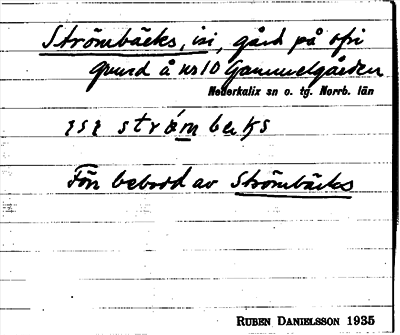 Strömbäcks, isi, gård på ofri
grund å nr 10 Gammelgården
Nederkalix sn o. tg. Norrb. län
Förr bebodd av Strömbäcks
RUBEN DANIELSSON 1935